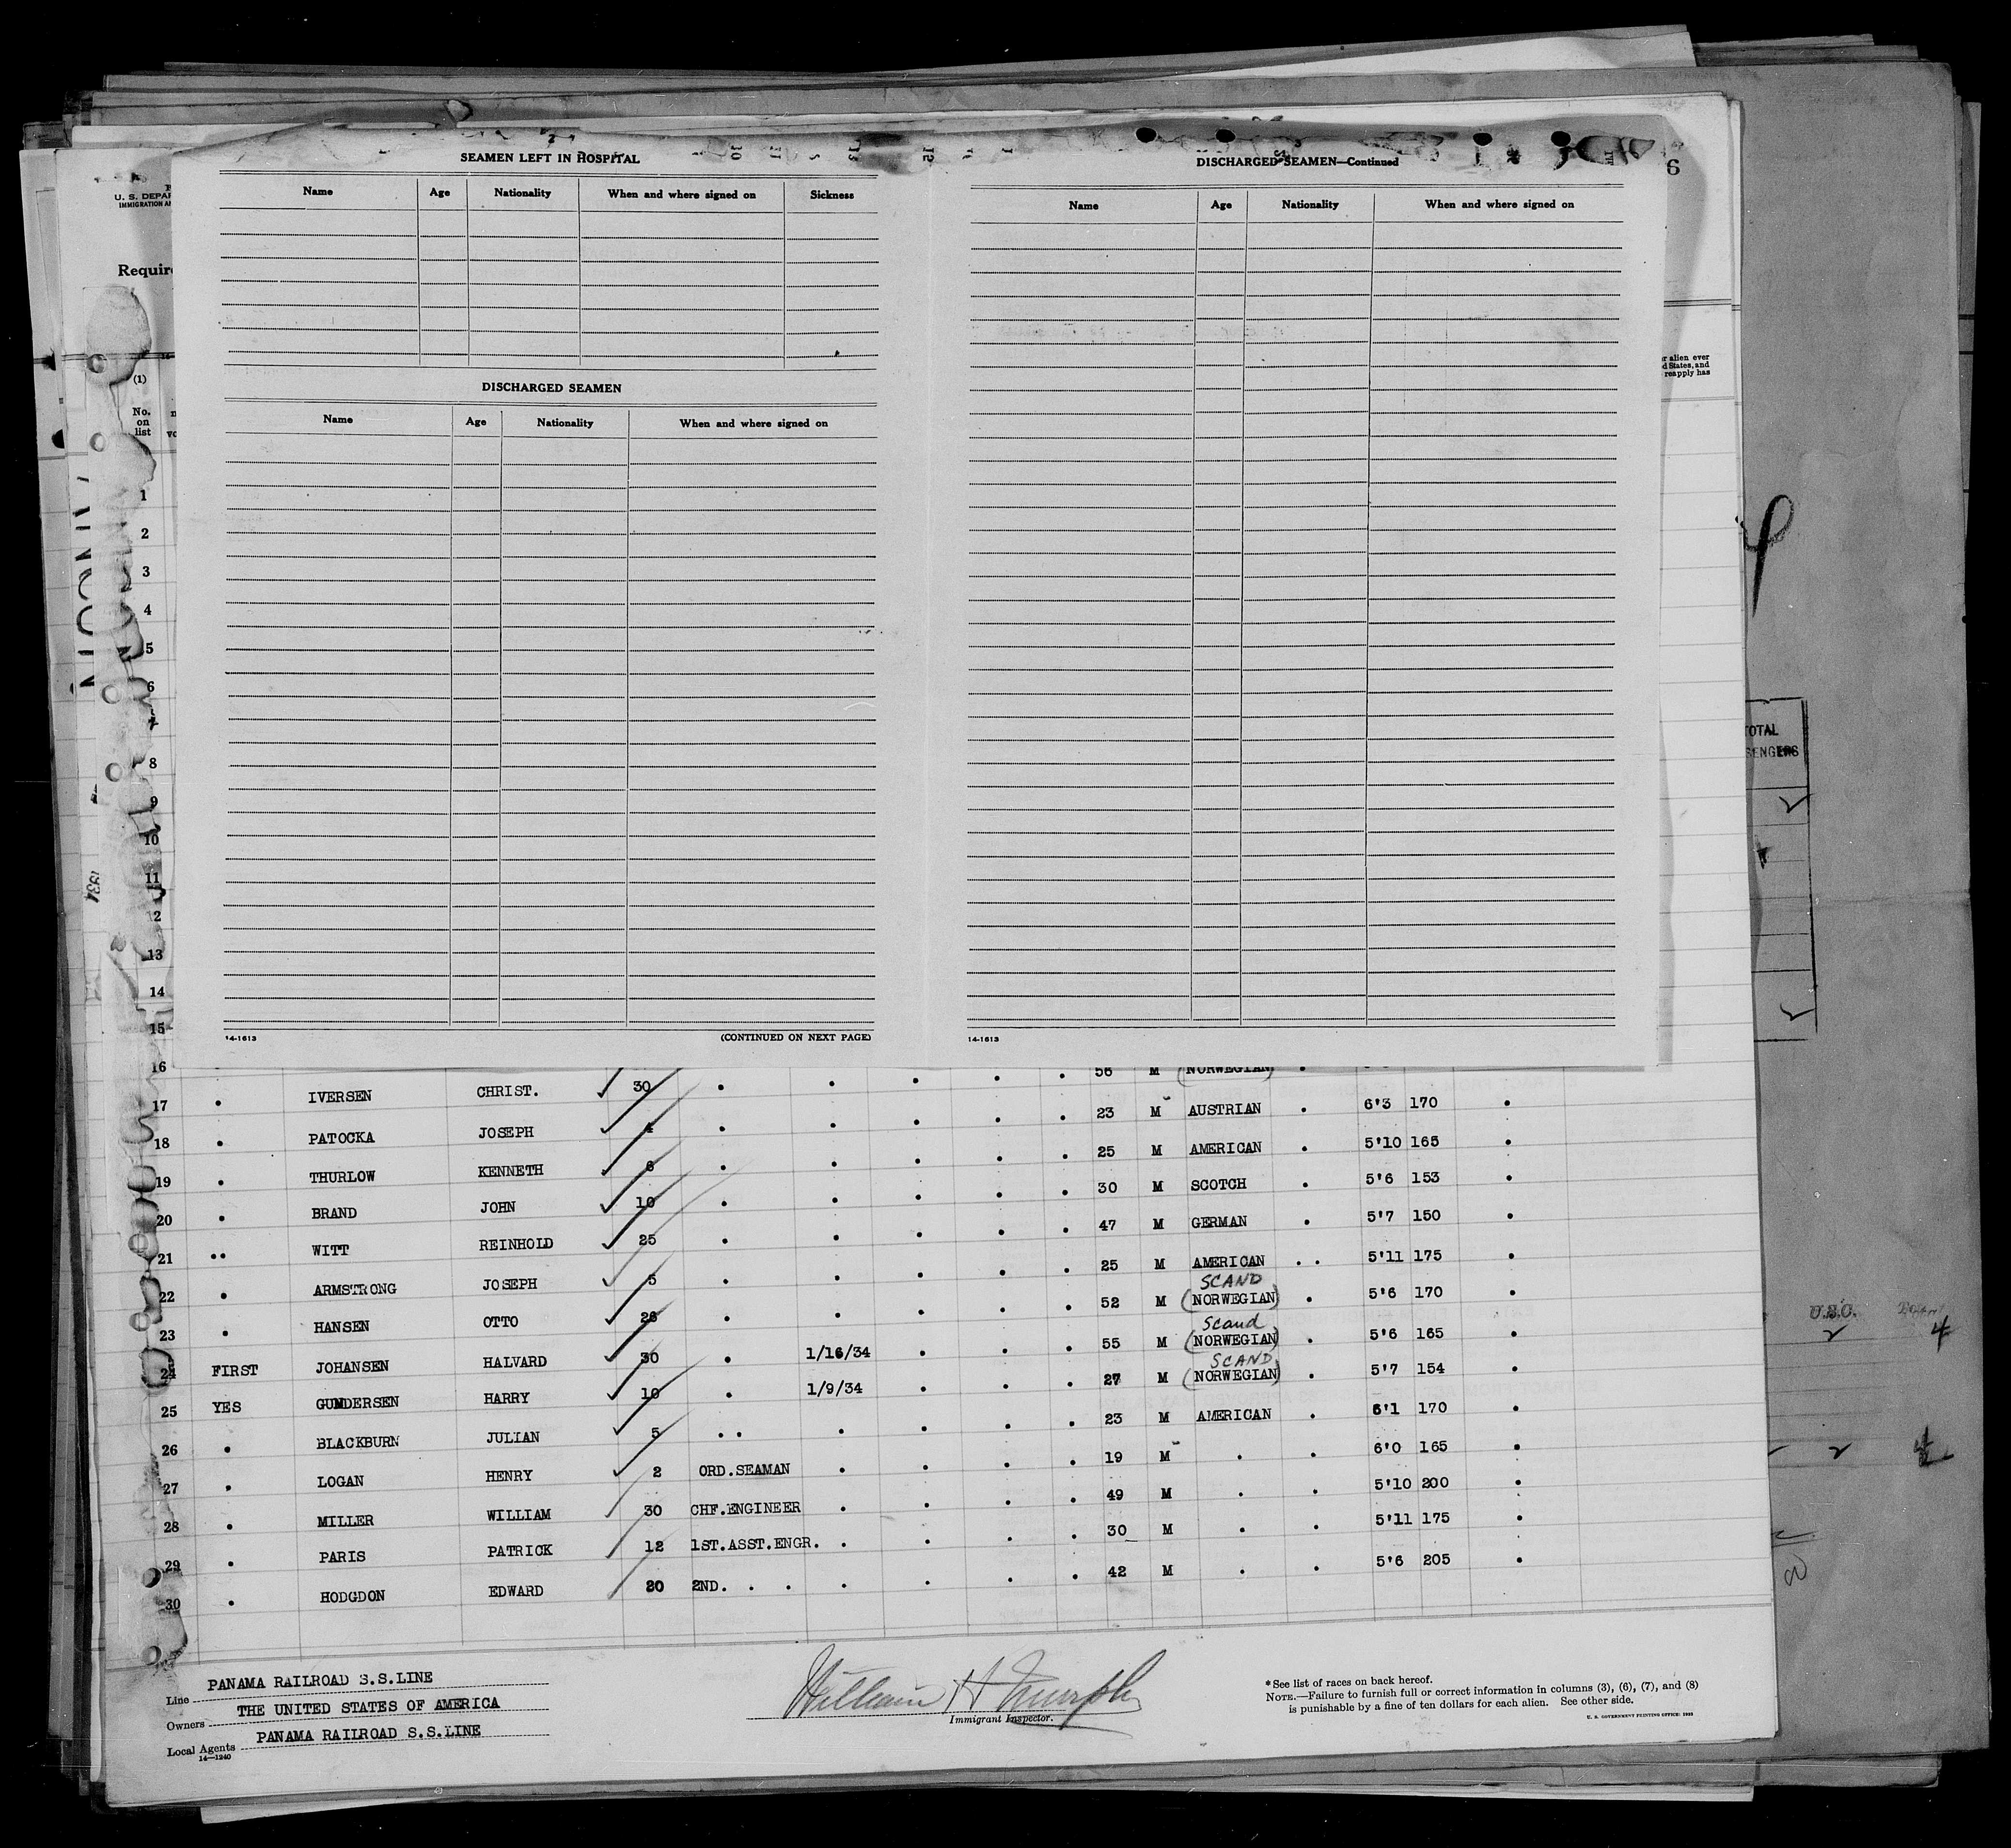 SEAMEN LEFT IN HOSPITAL
Name Age Nationality When and where signed on Sickness
DISCHARGED SEAMEN
Name Age Nationality When and where signed on
14-1613 (CONTINUED ON NEXT PAGE)
DISCHARGED SEAMEN—Continued
6
Name Age Nationality When and where signed on
14-1613
U. S. DEPAR
IMMIGRATION A
Require
r alien ever
d States, and
reapply has
(1)
No.
on
list
1934
1
2
3
4
5
6
7
8
9
10
11
12
13
14
15
TOTAL
SENGERS
16 IVERSEN CHRIST. 30 56 M (NORWEGIAN)
17 PATOCKA JOSEPH 4 23 M AUSTRIAN 6'3 170
18 THURLOW KENNETH 6 25 M AMERICAN 5'10 165
19 BRAND JOHN 10 30 M SCOTCH 5'6 153
20 WITT REINHOLD 25 47 M GERMAN 5'7 150
21 ARMSTRONG JOSEPH 5 25 M AMERICAN 5'11 175
SCAND
22 HANSEN OTTO 26 52 M (NORWEGIAN) 5'6 170
Scand
23 FIRST JOHANSEN HALVARD 30 1/16/34 55 M (NORWEGIAN) 5'6 165
SCAND
24 YES GUNDERSEN HARRY 10 1/9/34 27 M (NORWEGIAN) 5'7 154
25 BLACKBURN JULIAN 5 23 M AMERICAN 6'1 170
26 LOGAN HENRY 2 ORD.SEAMAN 19 M 6'0 165
27 MILLER WILLIAM 30 CHF.ENGINEER 49 M 5'10 200
28 PARIS PATRICK 12 1ST.ASST.ENGR. 30 M 5'11 175
29 HODGDON EDWARD 20 2ND. 42 M 5'6 205
30
U.S.C.
2 4
2 4
Line PANAMA RAILROAD S.S.LINE
Owners THE UNITED STATES OF AMERICA
Local Agents PANAMA RAILROAD S.S.LINE
14—1240
William H Murphy
Immigrant Inspector.
*See list of races on back hereof.
NOTE.—Failure to furnish full or correct information in columns (3), (6), (7), and (8)
is punishable by a fine of ten dollars for each alien. See other side.
U. S. GOVERNMENT PRINTING OFFICE: 1933